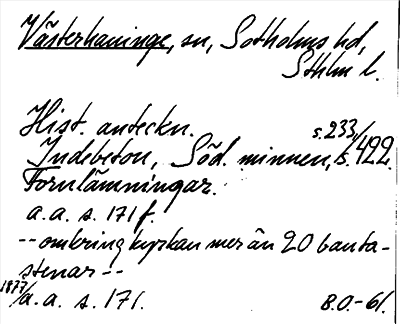 Västerhaninge, sn, Sotholms hd,
Sthlm l.
Hist. anteckn. s. 233,
Indebetou, Söd. minnen, s. 422.
Fornlämningar.
a. a. s. 171 f.
-- omkring kyrkan mer än 20 bauta-
stenar --
1877/a. a. s. 171. B.O.-61.